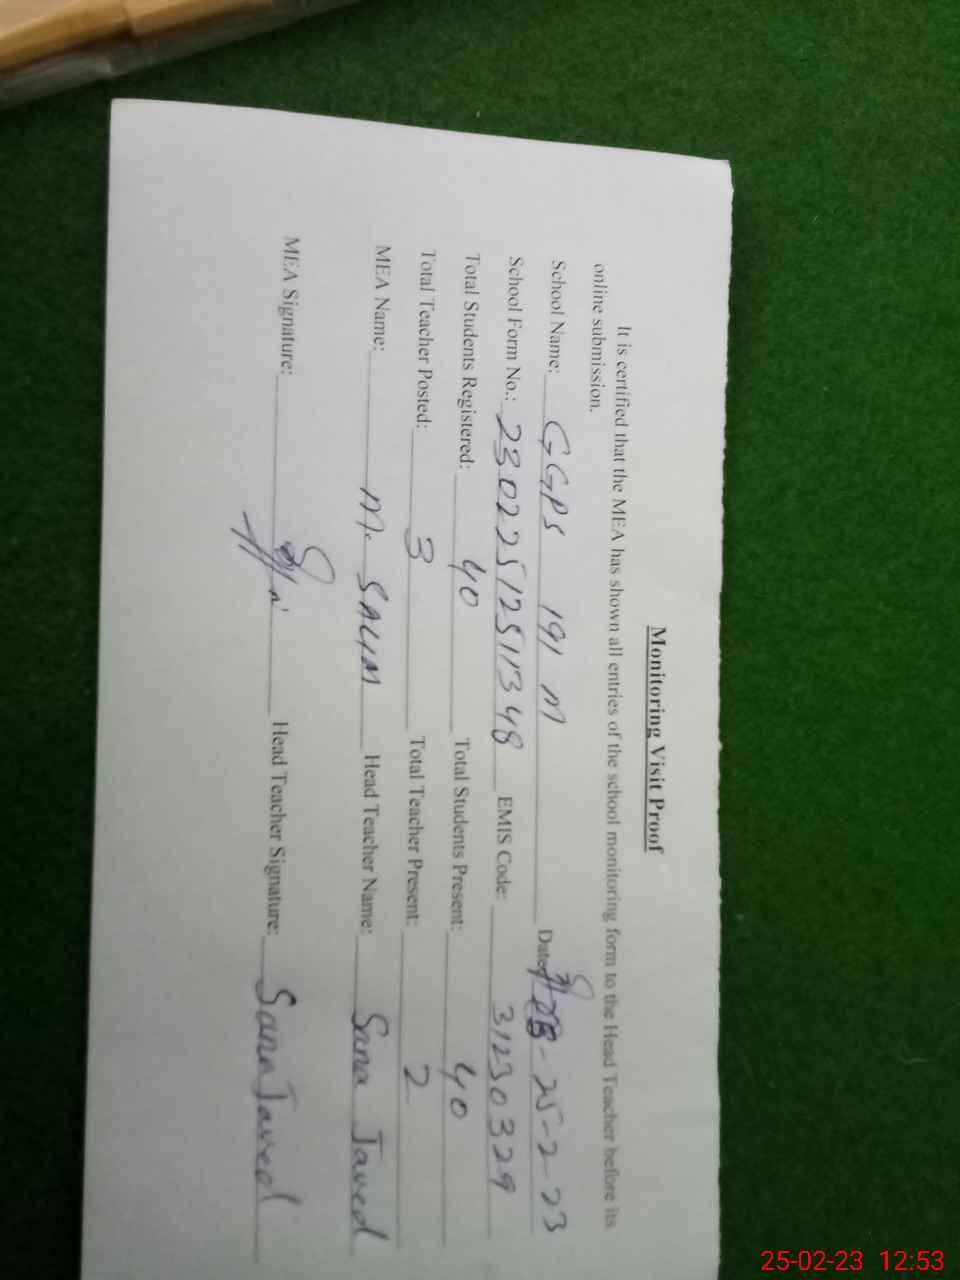 Monitoring Visit Proof
It is certified that the MEA has shown all entries of the school monitoring form to the Head Teacher before its
online submission.
School Name: GGPS 191 M Date: 25-2-23
School Form No.: 230225125111348 EMIS Code: 31230329
Total Students Registered: 40 Total Students Present: 40
Total Teacher Posted: 3 Total Teacher Present: 2
MEA Name: M. SALIM Head Teacher Name: Sana Javed
MEA Signature: Head Teacher Signature: Sana Javed
25-02-23 12:53